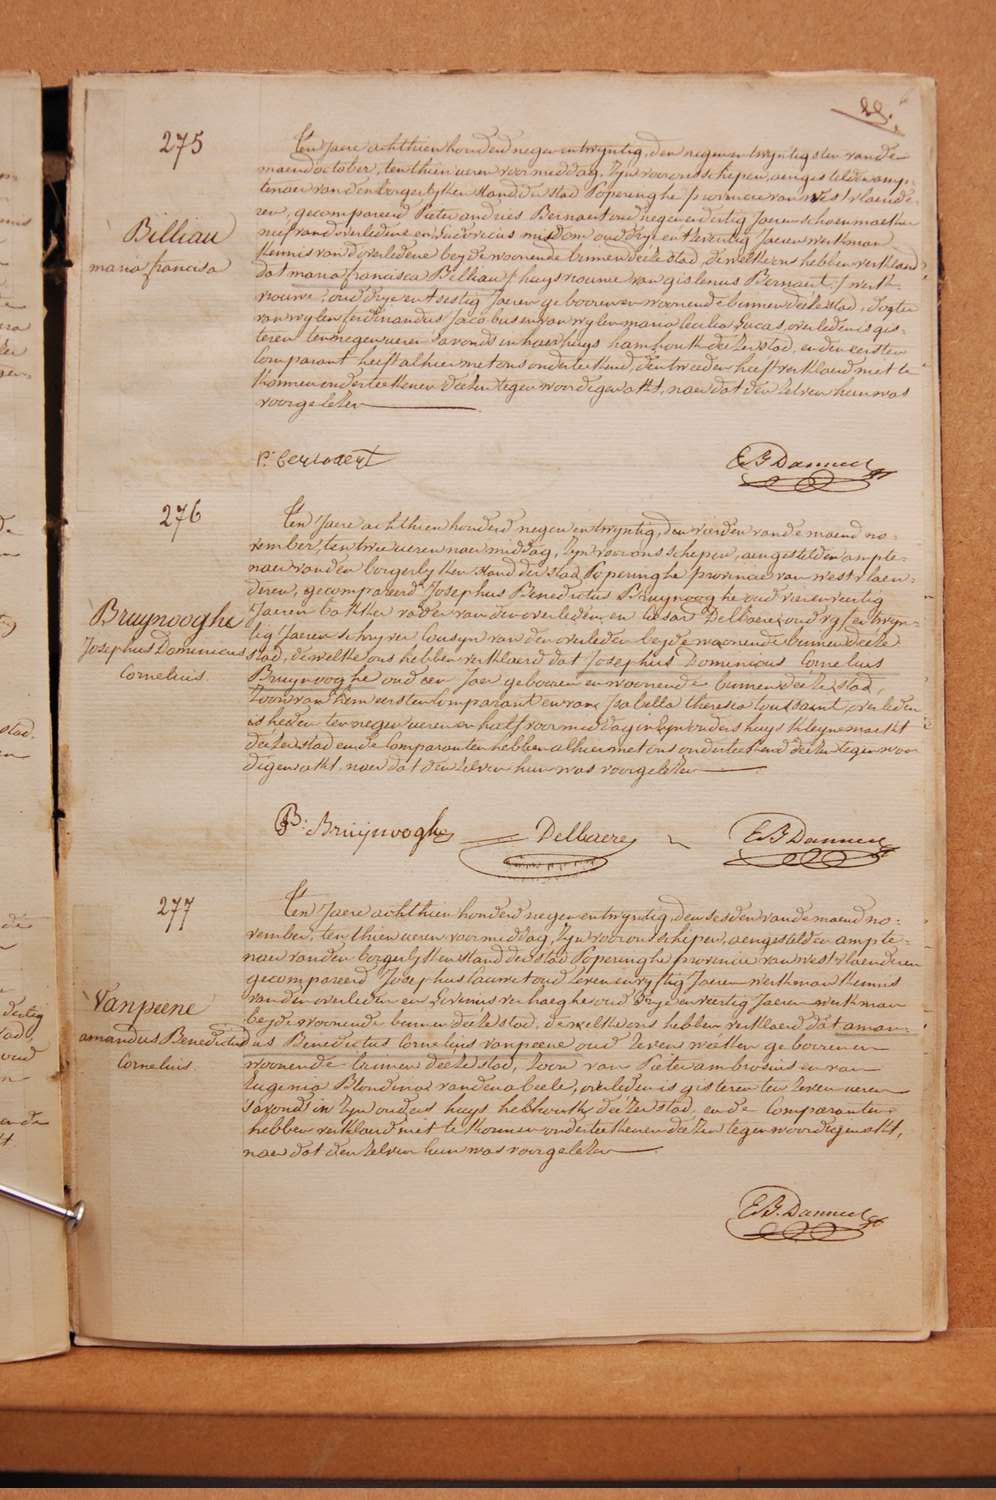 29.
275
Billiau
maria francisca
Ten Jaere achthien honderd negen en twyntig, den negen en twyntigsten van de
maend october, ten thien ueren voormiddag, Zyn voor ons schepen, aengestelden amp-
tenaer van den borgerlyken stand der stad Poperinghe provincie van West vlaende-
ren, gecompareerd Pieter andries Bernaert oud negen en dertig Jaeren schoenmaeker
neef van d'overledene en Ludovicus misdom oud dry en tzeventig Jaeren werkman
kennis van d'overledene beyde woonende binnen deeze stad, dewelke ons hebben verklaerd
dat maria francisca Billiau / huysvrouwe van gislenus Bernaert / werk-
vrouwe, oud dry en t'sestig Jaeren gebooren en woonende binnen deeze stad, dogter
van wylen ferdinandus Jacobus en van wylen maria Cecilia Lucas, overleden is gis-
teren ten negen ueren s'avonds in haer huys hamhoek deezer stad, en den eersten
Comparant heeft alhier met ons onderteekend, den tweeden heeft verklaerd niet te
konnen onderteekenen deezen tegenwoordigen akt, naer dat den zelven hun was
voorgelezen
P. bernaert
E B Danneel
276
Bruynooghe
Josephus Dominicus
Cornelius.
Ten Jaere achthien honderd negen en twyntig, den vierden van de maend no-
vember, ten twee ueren naer middag, Zyn voor ons schepen, aengestelden ampte-
naer van den borgerlyken stand der stad Poperinghe provincie van west vlaen-
deren, gecompareerd Josephus Benedictus Bruynooghe oud vier en veertig
Jaeren bakker vader van den overleden, en Cesar Delbaere oud vyf en twyn-
tig Jaeren schryver Cousyn van den overleden beyde woonende binnen deeze
stad, dewelke ons hebben verklaerd dat Josephus Dominicus Cornelius
Bruynooghe oud een Jaer gebooren en woonende binnen deeze stad,
Zoon van hem eersten Comparant en van Isabella theresia toussaint, overleden
is heden ten negen ueren en half voormiddag in Zyn ouders huys kleyne markt
deezer stad en de Comparanten hebben alhier met ons onderteekend deezen tegenwoor
digen akt, naer dat den zelven hun was voorgelezen
JB: Bruynooghe
Delbaere
E B Danneel
277
Vanpeene
amandus Benedictus
Cornelius.
Ten Jaere achthien honderd negen en twyntig, den sesden van de maend no-
vember, ten thien ueren voormiddag, Zyn voor ons schepen, aengestelden ampte-
naer van den borgerlyken stand der stad Poperinghe provincie van west vlaenderen
gecompareerd Josephus Cauwet oud zeven en vyftig Jaeren werkman kennis
van den overleden en Livinus verhaeghe oud dry en veertig Jaeren werkman
beyde woonende binnen deeze stad, dewelke ons hebben verklaerd dat aman-
dus Benedictus Cornelius vanpeene oud zeven weeken gebooren en
woonende binnen deeze stad, Zoon van Pieter ambrosius en van
Eugenia Blondina vanden abeele, overleden is gisteren ten zeven ueren
s'avonds in Zyn ouders huys helhoek deezer stad, en de Comparanten
hebben verklaerd niet te konnen onderteekenen deezen tegenwoordigen akt,
naer dat den zelven hun was voorgelezen
E B. Danneel